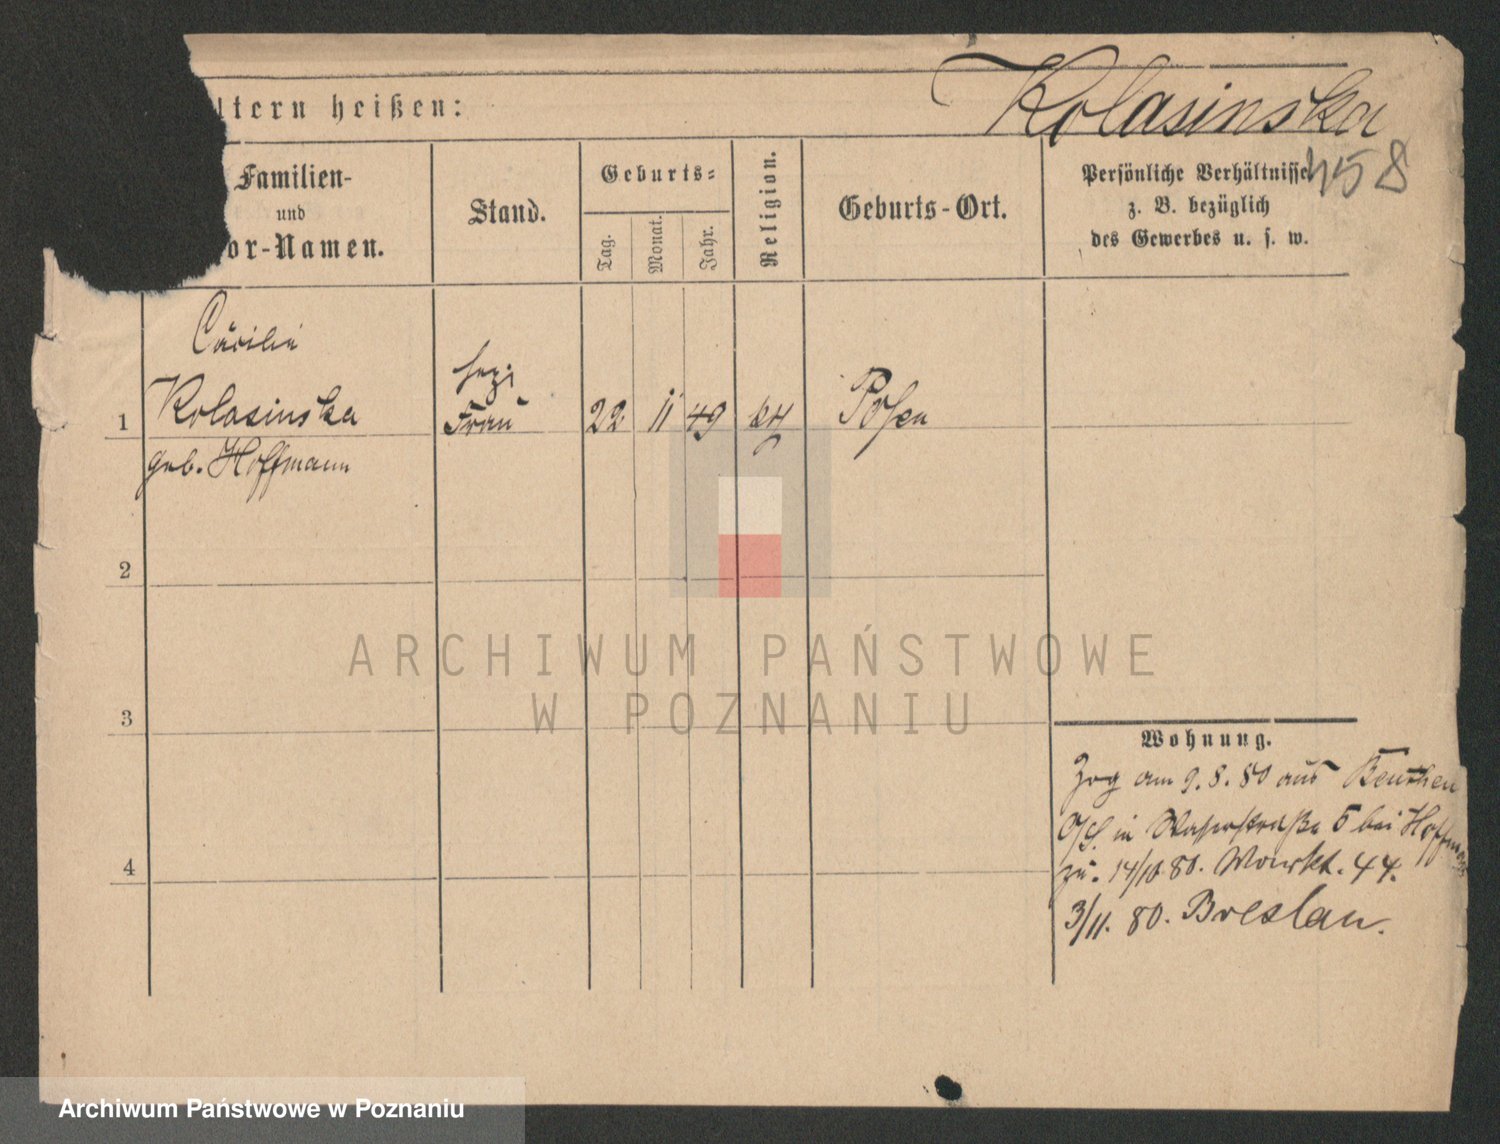 Kolasinska
ltern heißen:
458
Familien-
und
or-Namen.
Stand.
Geburts-
Tag.
Monat.
Jahr.
Religion.
Geburts-Ort.
Persönliche Verhältnisse
z. B. bezüglich
des Gewerbes u. s. w.
Cäcilie
1 Kolasinska
geb. Hoffmann
Frau
22 11 49
Posen
2
3
4
Wohnung.
Zog am 9. 8. 80 aus Beuthen
O/S. in 5 bei Hoffmann
zu. 14/10 80. 44.
3/11. 80. Breslau.
ARCHIWUM PAŃSTWOWE
W POZNANIU
Archiwum Państwowe w Poznaniu